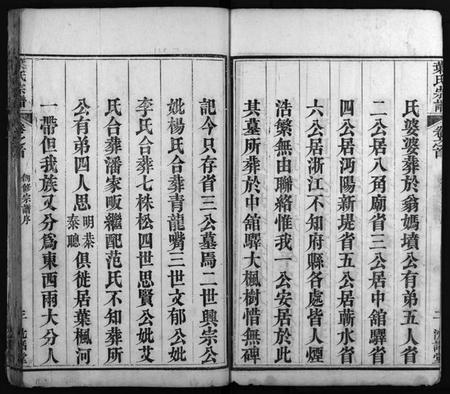 葉氏宗譜
卷之首
二
氏婆婆葬於翁媽墳公有弟五人省
二公居八角廟省三公居中舘驛省
四公居沔陽新堤省五公居蘄水省
六公居浙江不知府縣各處皆人煙
浩繁無由聯絡惟我一公安居於此
其墓所葬於中舘驛大楓樹惜無碑
記今只存省三公墓焉二世興宗公
妣楊氏合葬青龍嘴三世文郁公妣
李氏合葬七株松四世思賢公妣艾
氏合葬潘家畈繼配范氏不知葬所
公有弟四人思明恭泰聰俱徙居葉楓河
一帶但我族又分爲東西兩大分人
葉氏宗譜
卷之首
創修宗譜序
三